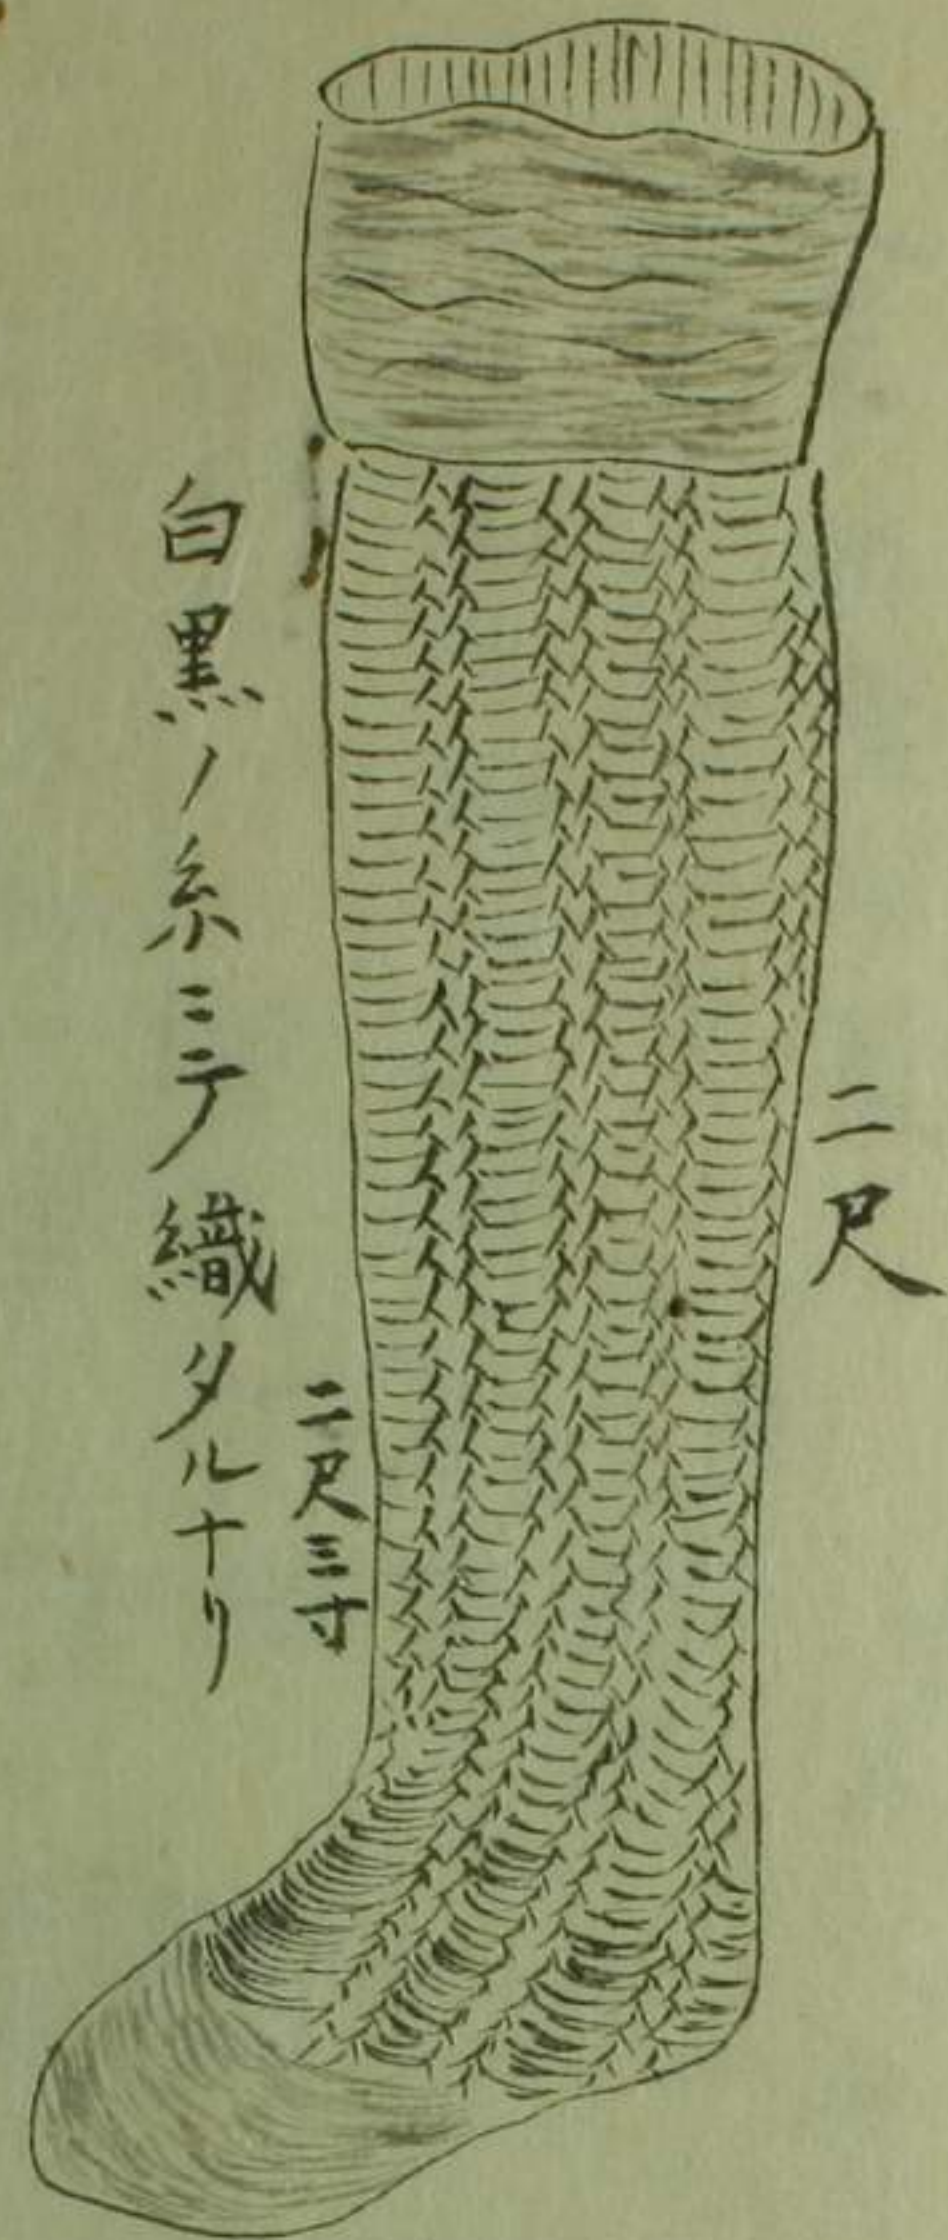 二尺
二尺三寸
白黒ノ糸ニテ織タルナリ